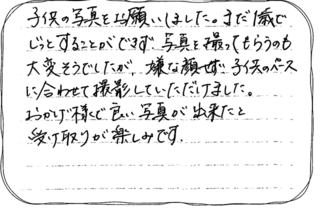 子供の写真をお願いしました。まだ1歳で
じっとすることができず 写真を撮ってもらうのも
大変そうでしたが、嫌な顔せず 子供のペース
に合わせて撮影していただけました。
おかげ様で良い写真が出来たと
受け取りが楽しみです。